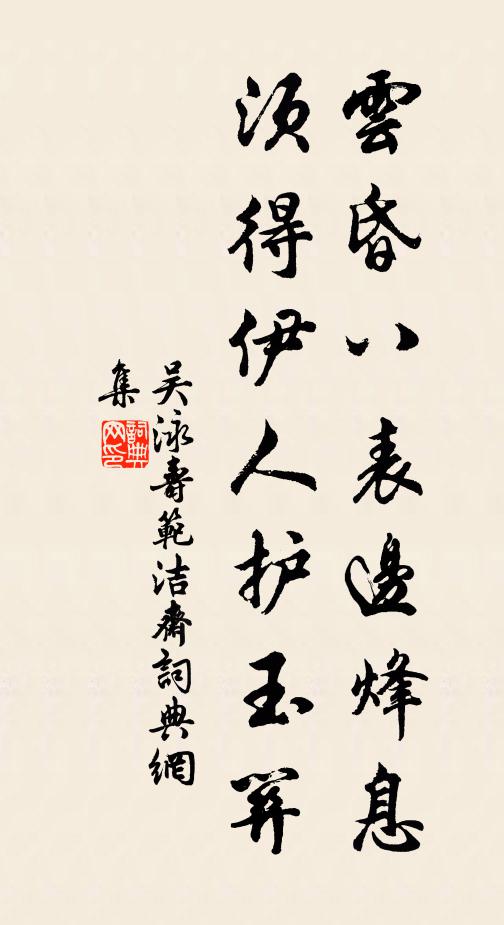 雲昏八表邊烽息
須得伊人护玉關
吴泳壽範洁齋詞典網
集
詞典网印